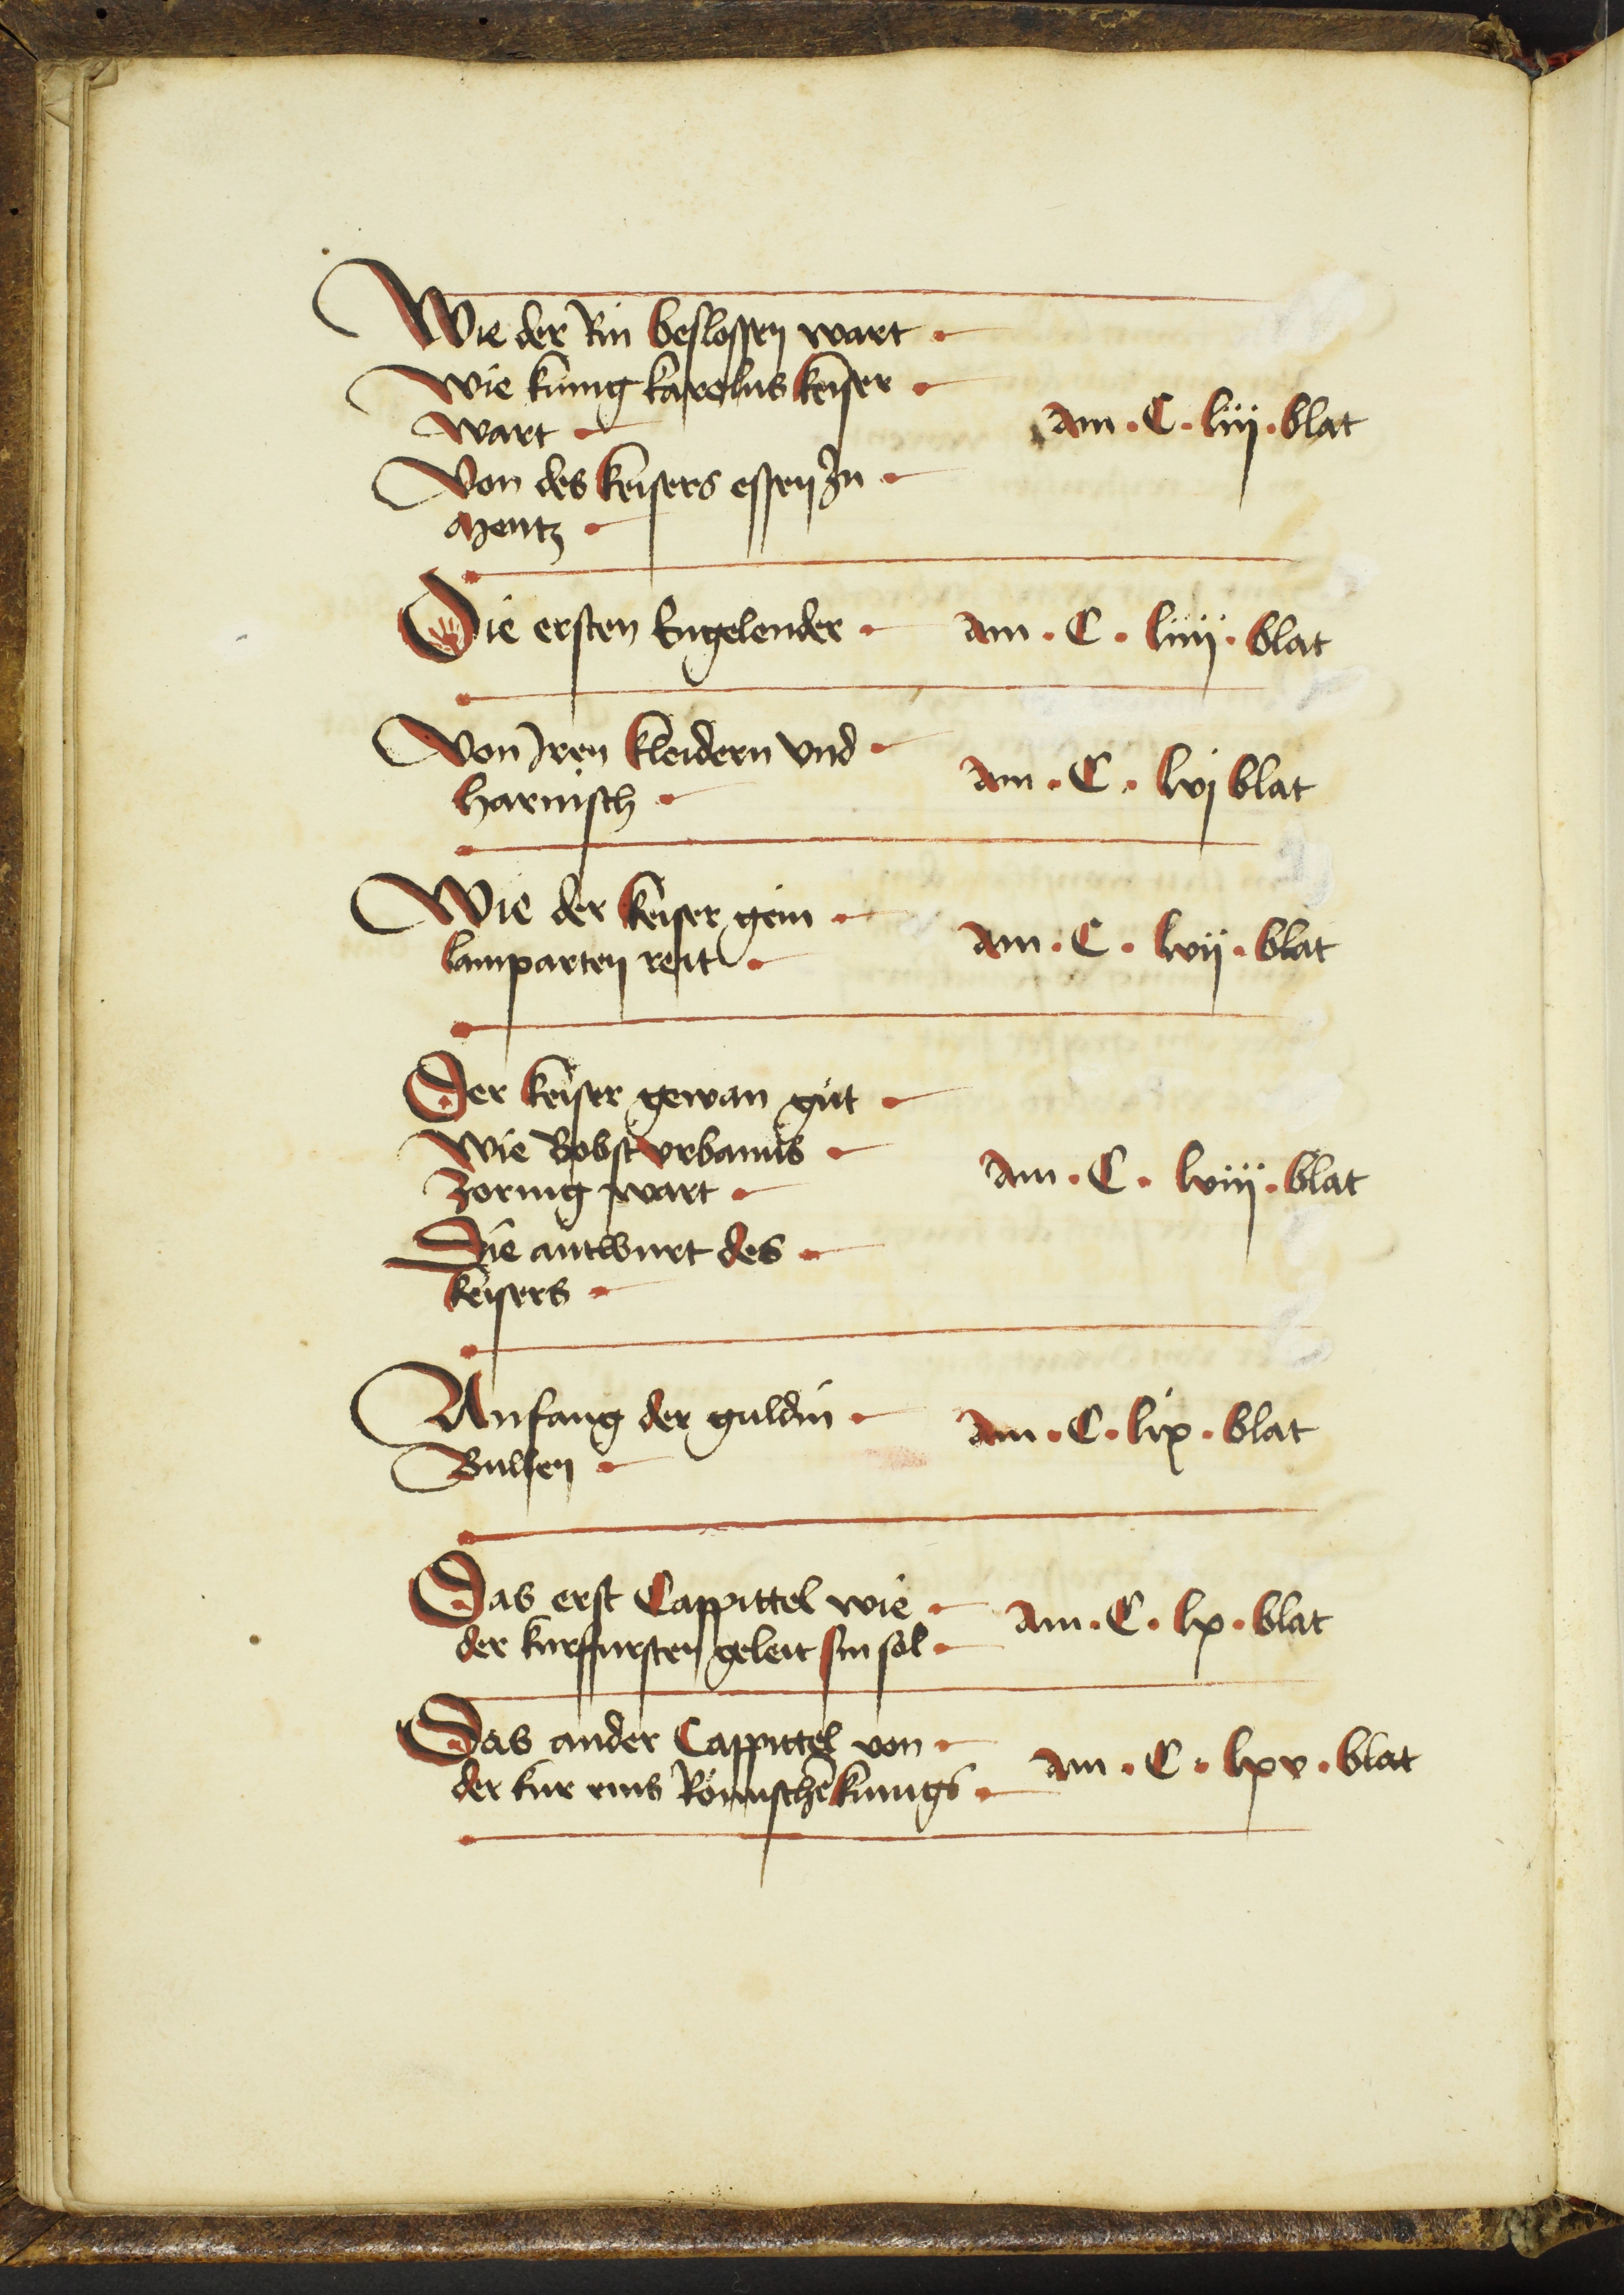 Wie der Rin beslossen wart
Wie kunig karolus keiser
wart
Von des keisers essen In
Mentz
am · C · liij · blat
Die ersten Engelender am · C · liiij · blat
Von Iren kleidern vnd
harnisch
am · C · lvj blat
Wie der keiser gein
lamparten reit
am · C · lvij · blat
Der keiser gewan gut
Wie Bobst vrbanus
zornig wart
Die antwurt des
keisers
am · C · lviij · blat
Anfang der guldin
Bullen
am · C · lix · blat
Das erst Cappittel wie
der kurffursten geleit sin sol
am · C · lx · blat
Das ander Cappittel von
der kur eins Römschē kunigs
am · C · lxv · blat